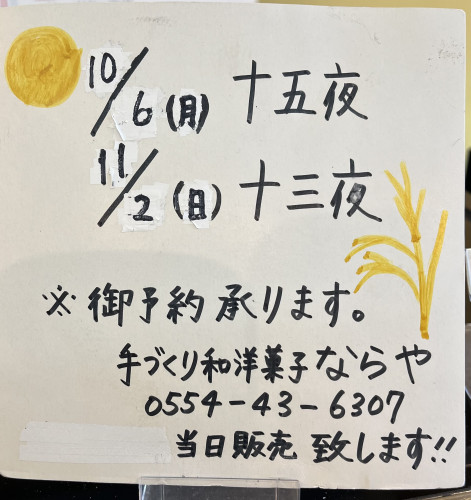 10/6(月) 十五夜
11/2(日) 十三夜
※御予約承ります。
手づくり和洋菓子ならや
0554-43-6307
当日販売 致します!!